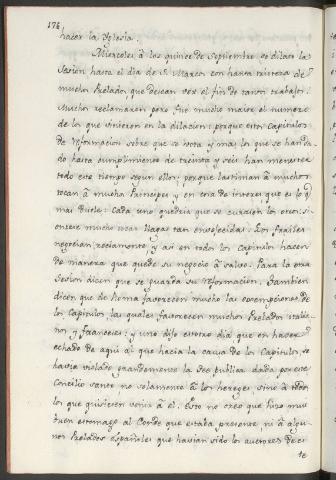 176
hacer la Iglesia.
Miercoles â los quince de Septiembre se dilato la
Sesion hasta el dia de S. Marcos con harta tristeza de
muchos Prelados que desean ver el fin de tantos trabajos.
Mucho reclamaron pero fue mucho maior el numero
de los que vinieron en la dilacion: porque estos Capitulos
de Reformacion sobre que se vota y mas los que se han da
do hasta cumplimiento de treinta y seis han menester
todo este tiempo segun ellos; porque lastiman â muchos
tocan â muchos Principes, y en cosa de interes, que es lo q
mas duele: Cada uno querria que se curasen los otros: si
entere mucho tocar llagas tan envejecidas: Los frailes
negocian reciamente y asi en todos los Capitulos hacen
de manera que quede su negocio â salvo. Para la otra
Sesion dicen que se guarda su Reformacion. Tambien
dicen que de Roma favorecen mucho las excempciones de
los Capitulos las quales favorecen muchos Prelados italia
nos y franceses: y uno dijo estotro dia que en haver
echado de aqui â que hacia la causa de los Capitulos se
havia violado grandemente la fee publica dada por este
Concilio santo no solamente â los hereges sino â todos
los que quisiesen venir â el. Esto no creo que hizo mui
buen estomago al Conde que estaba presente ni â algu
nos Prelados españoles que havian sido los auctores de es
te